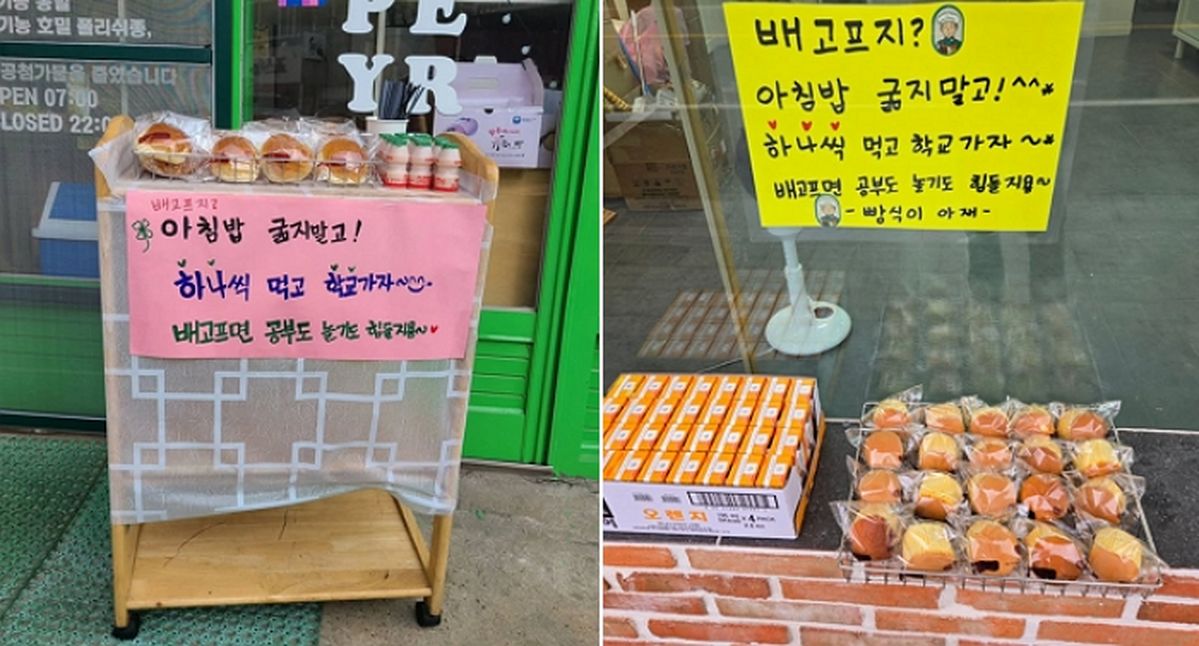 기능 호밀 폴리쉬종,
공첨가물을 줄였습니다
PEN 07:00
LOSED 22:0
PE
YR
배고프지?
아침밥 굶지말고!
하나씩 먹고 학교가자~
배고프면 공부도 놀기도 힘들지용~
배고프지?
아침밥 굶지말고! ^^*
하나씩 먹고 학교가자 ~*
배고프면 공부도 놀기도 힘들지용~
- 빵식이 아재 -
오렌지